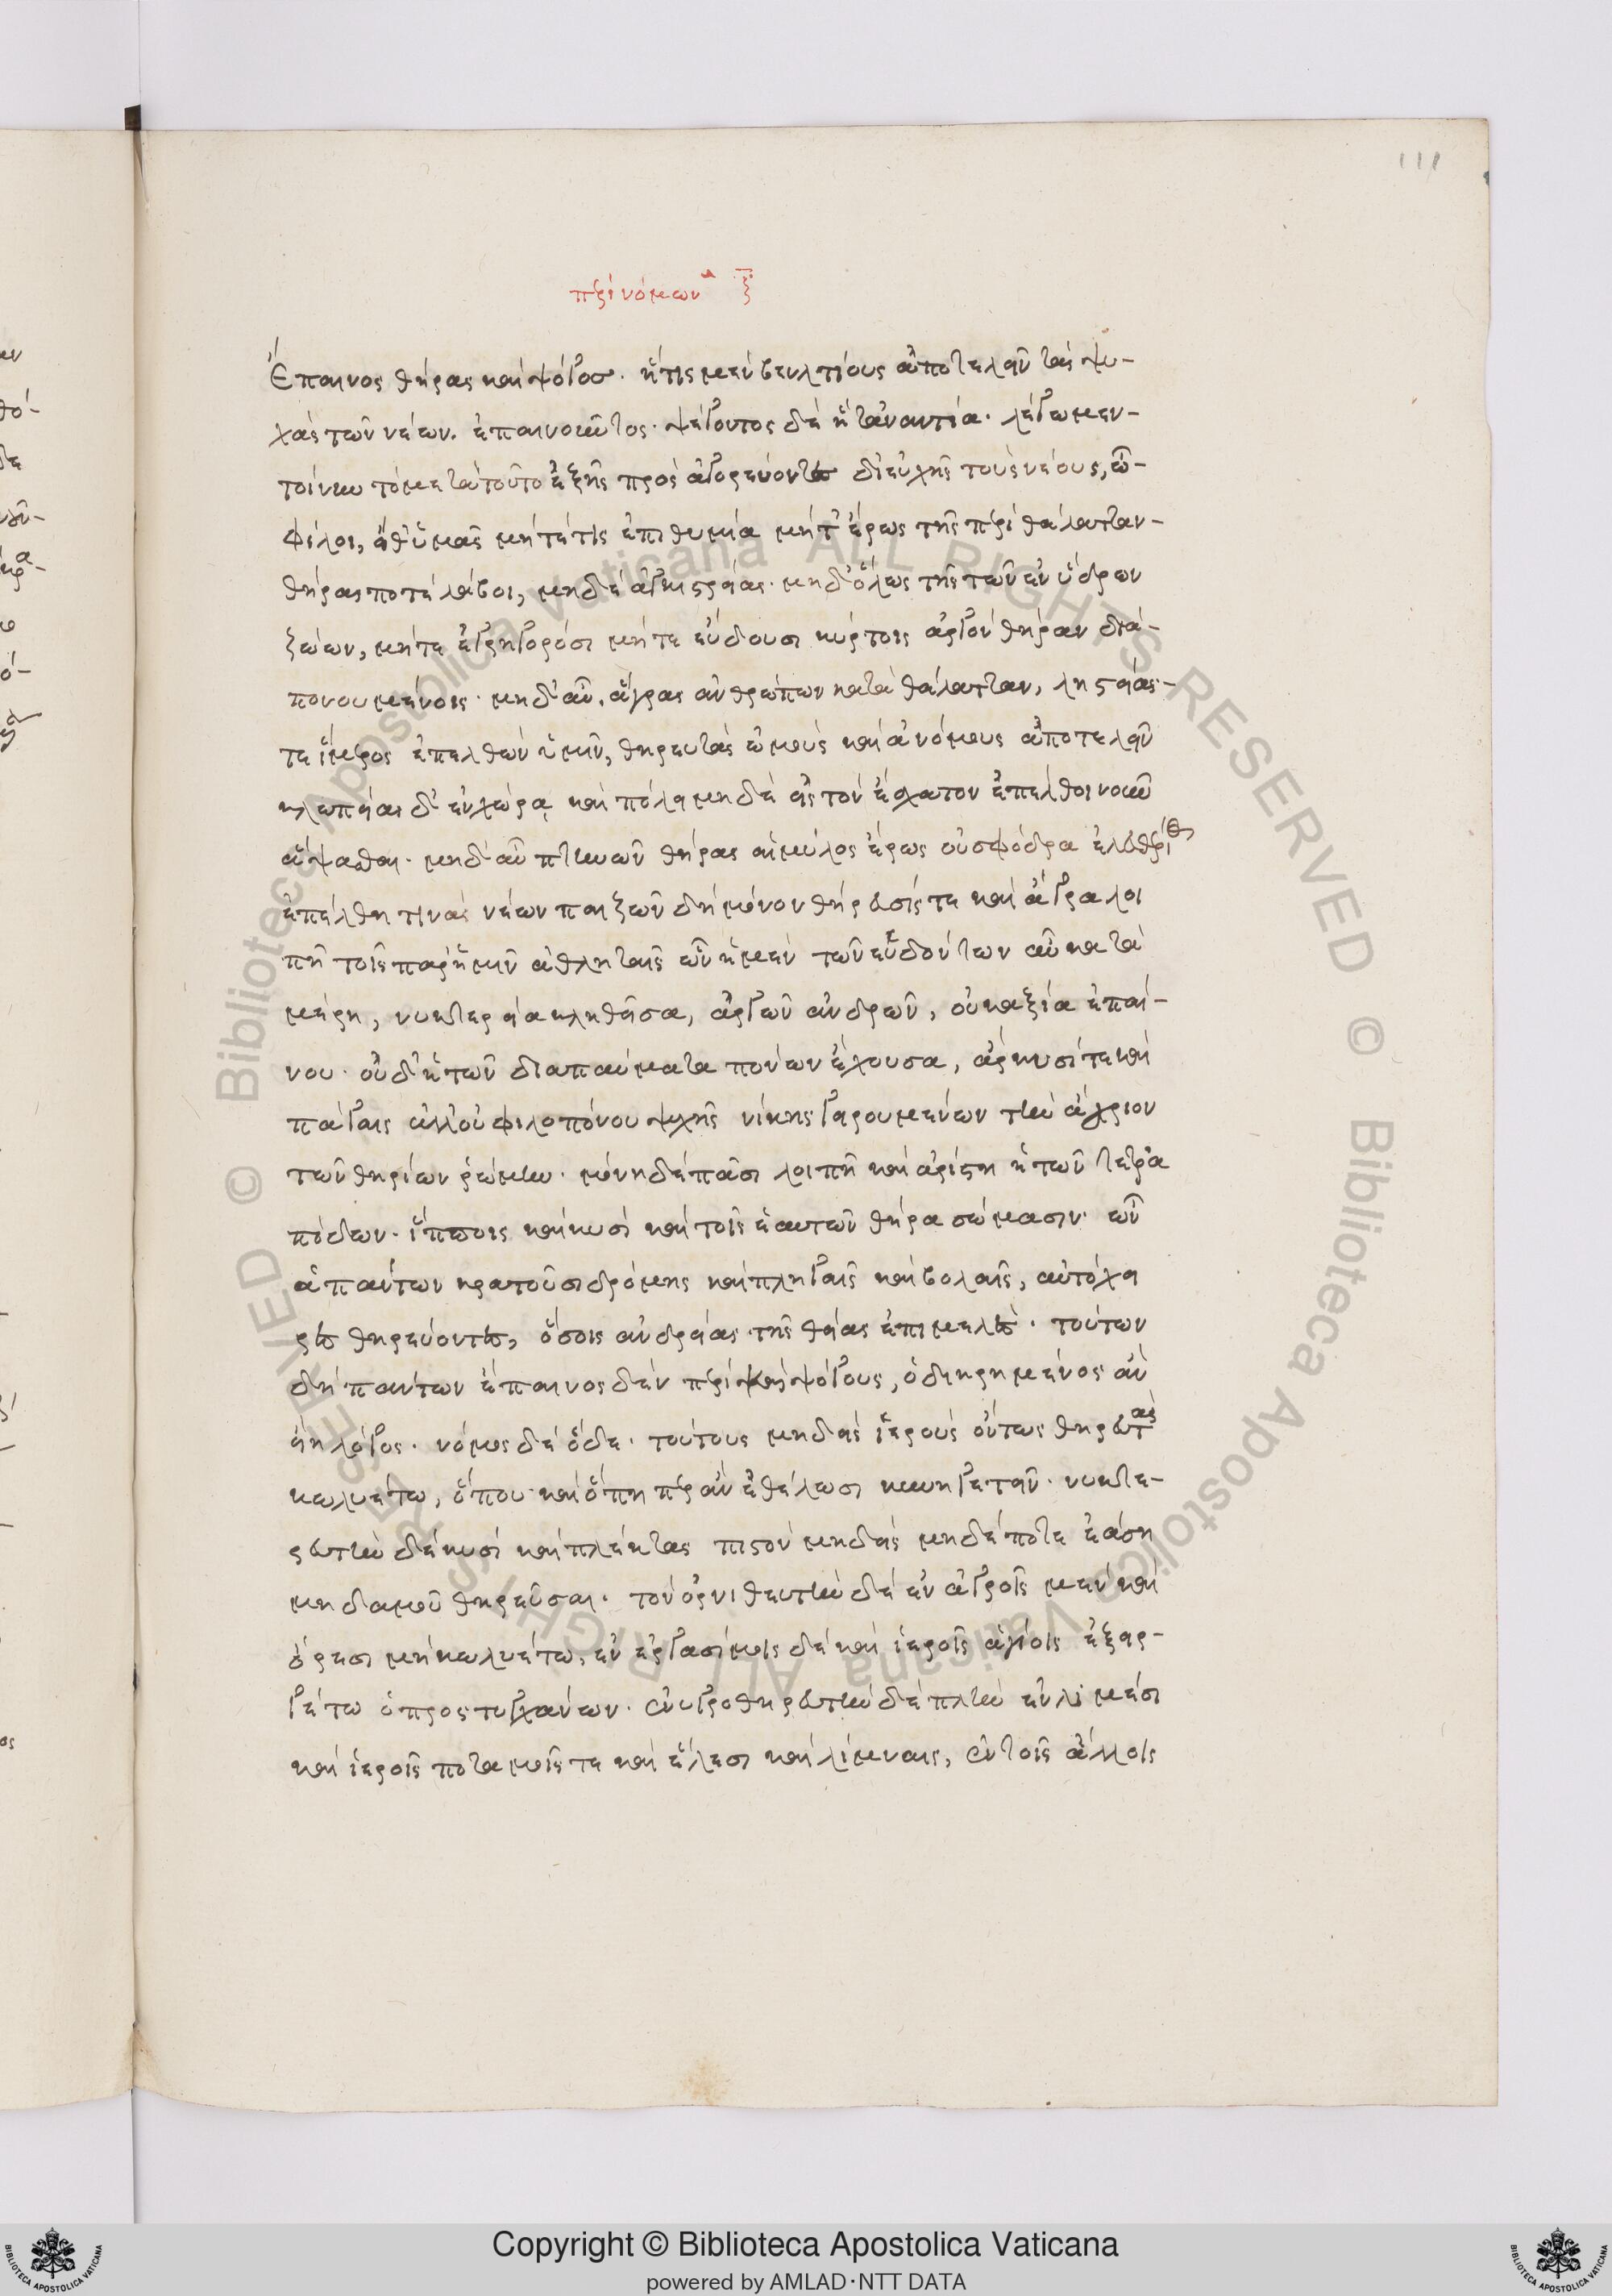 111
περὶ νόμων ζ
Ἔπαινος θήρας καὶ ψόγοσ. ἥτις μὲν βελτίους ἀποτελεῖν τὰς ψυ-
χὰς τῶν νέων. ἐπαινοῦντος. ψέγοντος δὲ ἣ τἀναντία. λέγωμεν-
τοίνυν τὸ μετὰ τοῦτο ἑξῆς προσαγορεύοντες δι' εὐχῆς τοὺς νέους, ὦ-
φίλοι, εἴθ' ὑμᾶς μήτέ τις ἐπιθυμία μήτ' ἔρως τῆς περὶ θάλατταν-
θήρας ποτὲ λάβοι, μηδὲ ἀγκιστρείας. μηδ' ὅλως τῆς τῶν ἐν ὕδρων
ζώων, μήτε ἐγρηγορόσι μήτε εὕδουσι κύρτοις ἀργὸν θήραν δια-
πονουμένοις. μηδ' αὖ. ἄγρας ἀνθρώπων κατὰ θάλατταν, λῃστείας-
τε ἵμερος ἐπελθὼν ὑμῖν, θηρευτὰς ὠμοὺς καὶ ἀνόμους ἀποτελεῖν
κλωπείας δ' ἐν χώρᾳ καὶ πόλει μηδὲ εἰς τὸν ἔσχατον ἐπέλθοι νοῦν
ἅψασθαι. μηδ' αὖ πτηνῶν θήρας αἱμύλος ἔρως οὐ σφόδρα ἐλευθέριος
ἐπέλθῃ τινὰς νέων παιζῶν δὴ μόνον θήρευσίς τε καὶ ἄγρα λοι
πὴ τοῖς παρ' ἡμῖν ἀθληταῖς ὧν ἡ μὲν τῶν εὑδόντων αὖ κατὰ
μέρη, νυκτερεία κληθεῖσα, ἀργῶν ἀνδρῶν, οὐκ ἀξία ἐπαί-
νου. οὐδ' ἡ τῶν διαπαύματα πόνων ἔχουσα, ἄρκυσί τε καὶ
πάγαις ἀλλ' οὐ φιλοπόνου ψυχῆς νίκης χειρουμένων τὴν ἄγριον
τῶν θηρίων ῥώμην. μόνη δὲ πᾶσι λοιπὴ καὶ ἀρίστη ἡ τῶν τετρα
πόδων. ἵπποις καὶ κυσὶ καὶ τοῖς ἑαυτῶν θήρα σώμασιν. ὧν
ἁπάντων κρατοῦσι δρόμοις καὶ πληγαῖς καὶ βολαῖς, αὐτόχει
ρες θηρεύοντες, ὅσοις ἀνδρείας. τῆς θείας ἐπιμελές. τούτων
δὴ πάντων ἔπαινος δὲν πέρι καὶ ψόγους, ὁ διῃρημένος ἂν
εἴη λόγος. νόμος δὲ ὅδε. τούτους μηδεὶς ἱεροὺς οὕτως θηρευτὰς
κωλυέτω, ὅπου καὶ ὅπη περ ἂν ἐθέλωσι κυνηγετεῖν. νυκτε-
ρευτὴν δὲ κυσὶ καὶ πλέκτας πιστὸν μηδεὶς μηδέποτε ἐάσῃ
μηδαμοῦ θηρεῦσαι. τὸν ὀρνιθευτὴν δὲ ἐν ἀγροῖς μὲν καὶ
ὄρεσι μὴ κωλυέτω, ἐν ἐργασίμοις δὲ καὶ ἱεροῖς ἁγίοις ἐξειρ-
γέτω ὁ προστυγχάνων. ἐνυγροθηρευτὴν δὲ πλὴν ἐν λιμέσι
καὶ ἱεροῖς ποταμοῖς τε καὶ ἕλεσι καὶ λίμναις, ἐν τοῖς ἄλλοις
© Biblioteca Apostolica Vaticana ALL RIGHTS RESERVED
Copyright © Biblioteca Apostolica Vaticana
powered by AMLAD·NTT DATA